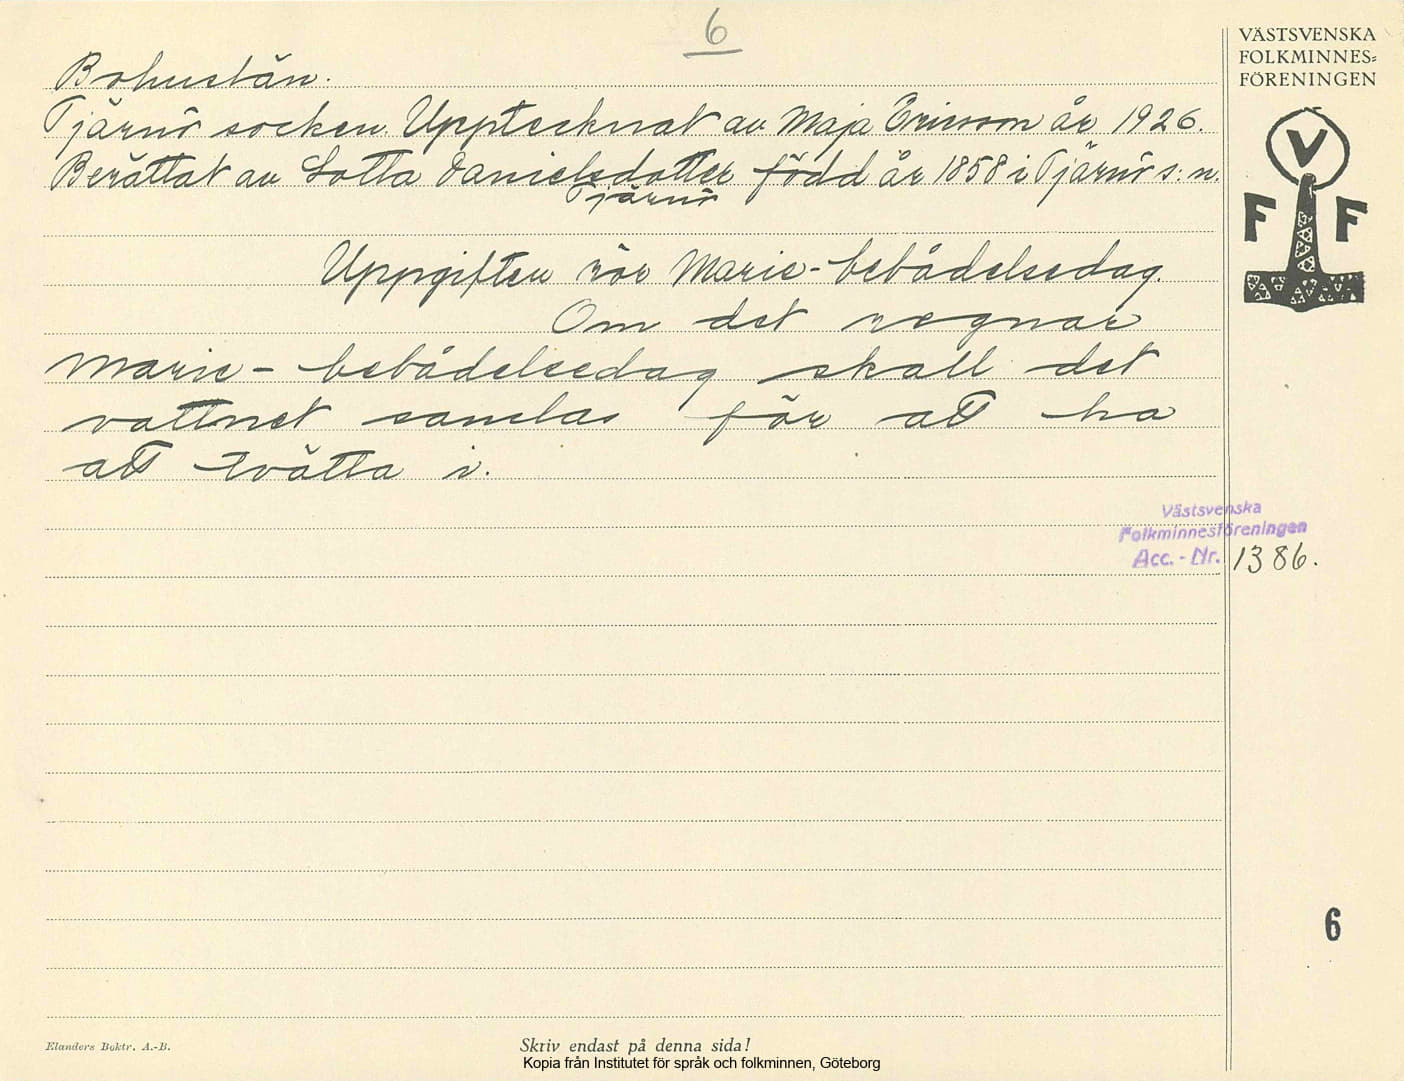 6
VÄSTSVENSKA
FOLKMINNES=
FÖRENINGEN
V
F F
Bohuslän.
Tjärnö socken. Upptecknat av Maja Ericsson år 1926.
Berättat av Lotta Danielsdotter född år 1858 i Tjärnö s:n.
Tjärnö
Uppgiften rör Marie-bebådelsedag.
Om det regnar
Marie-bebådelsedag skall det
vattnet samlas för att ha
att tvätta i.
Västsvenska
Folkminnesföreningen
Acc. - Nr. 1386.
6
Elanders Boktr. A.-B.
Skriv endast på denna sida!
Kopia från Institutet för språk och folkminnen, Göteborg